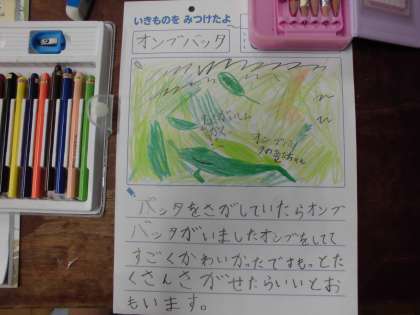 いきものを みつけたよ
オンブバッタ
バッタをさがしていたらオンブ
バッタがいましたオンブをしてて
すごくかわいかったですもっとた
くさんさがせたらいいとお
もいます。